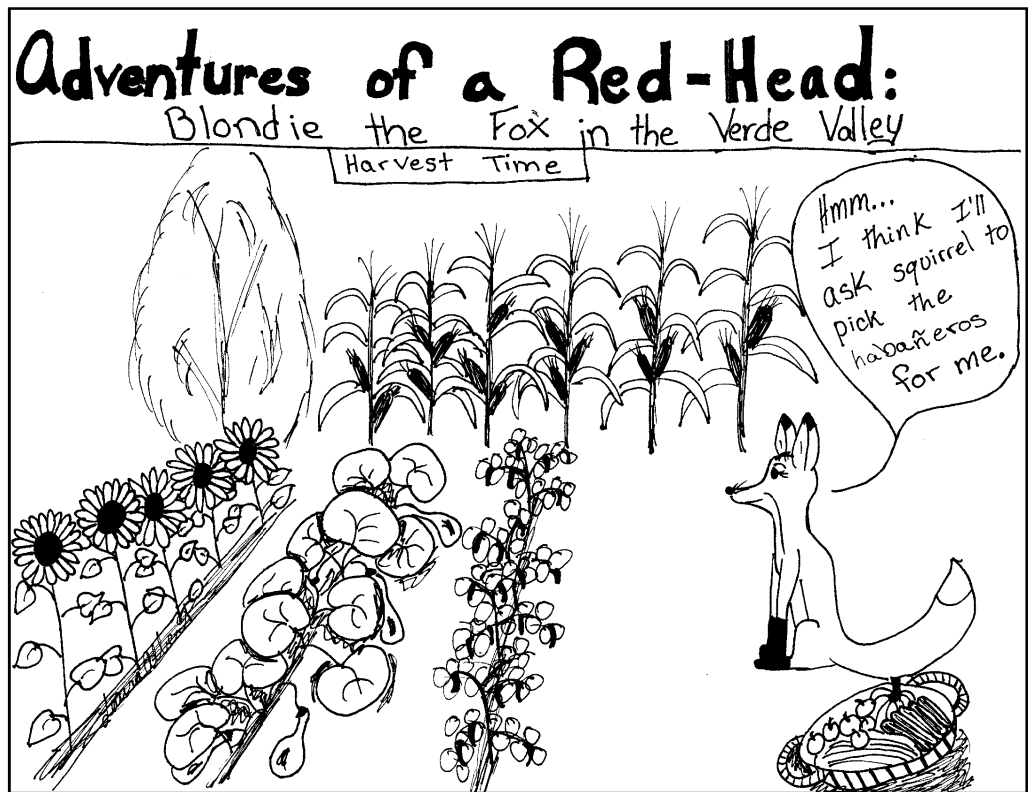 Adventures of a Red-Head:
Blondie the Fox in the Verde Valley
Harvest Time
Hmm...
I think I'll
ask squirrel to
pick the
habañeros
for me.